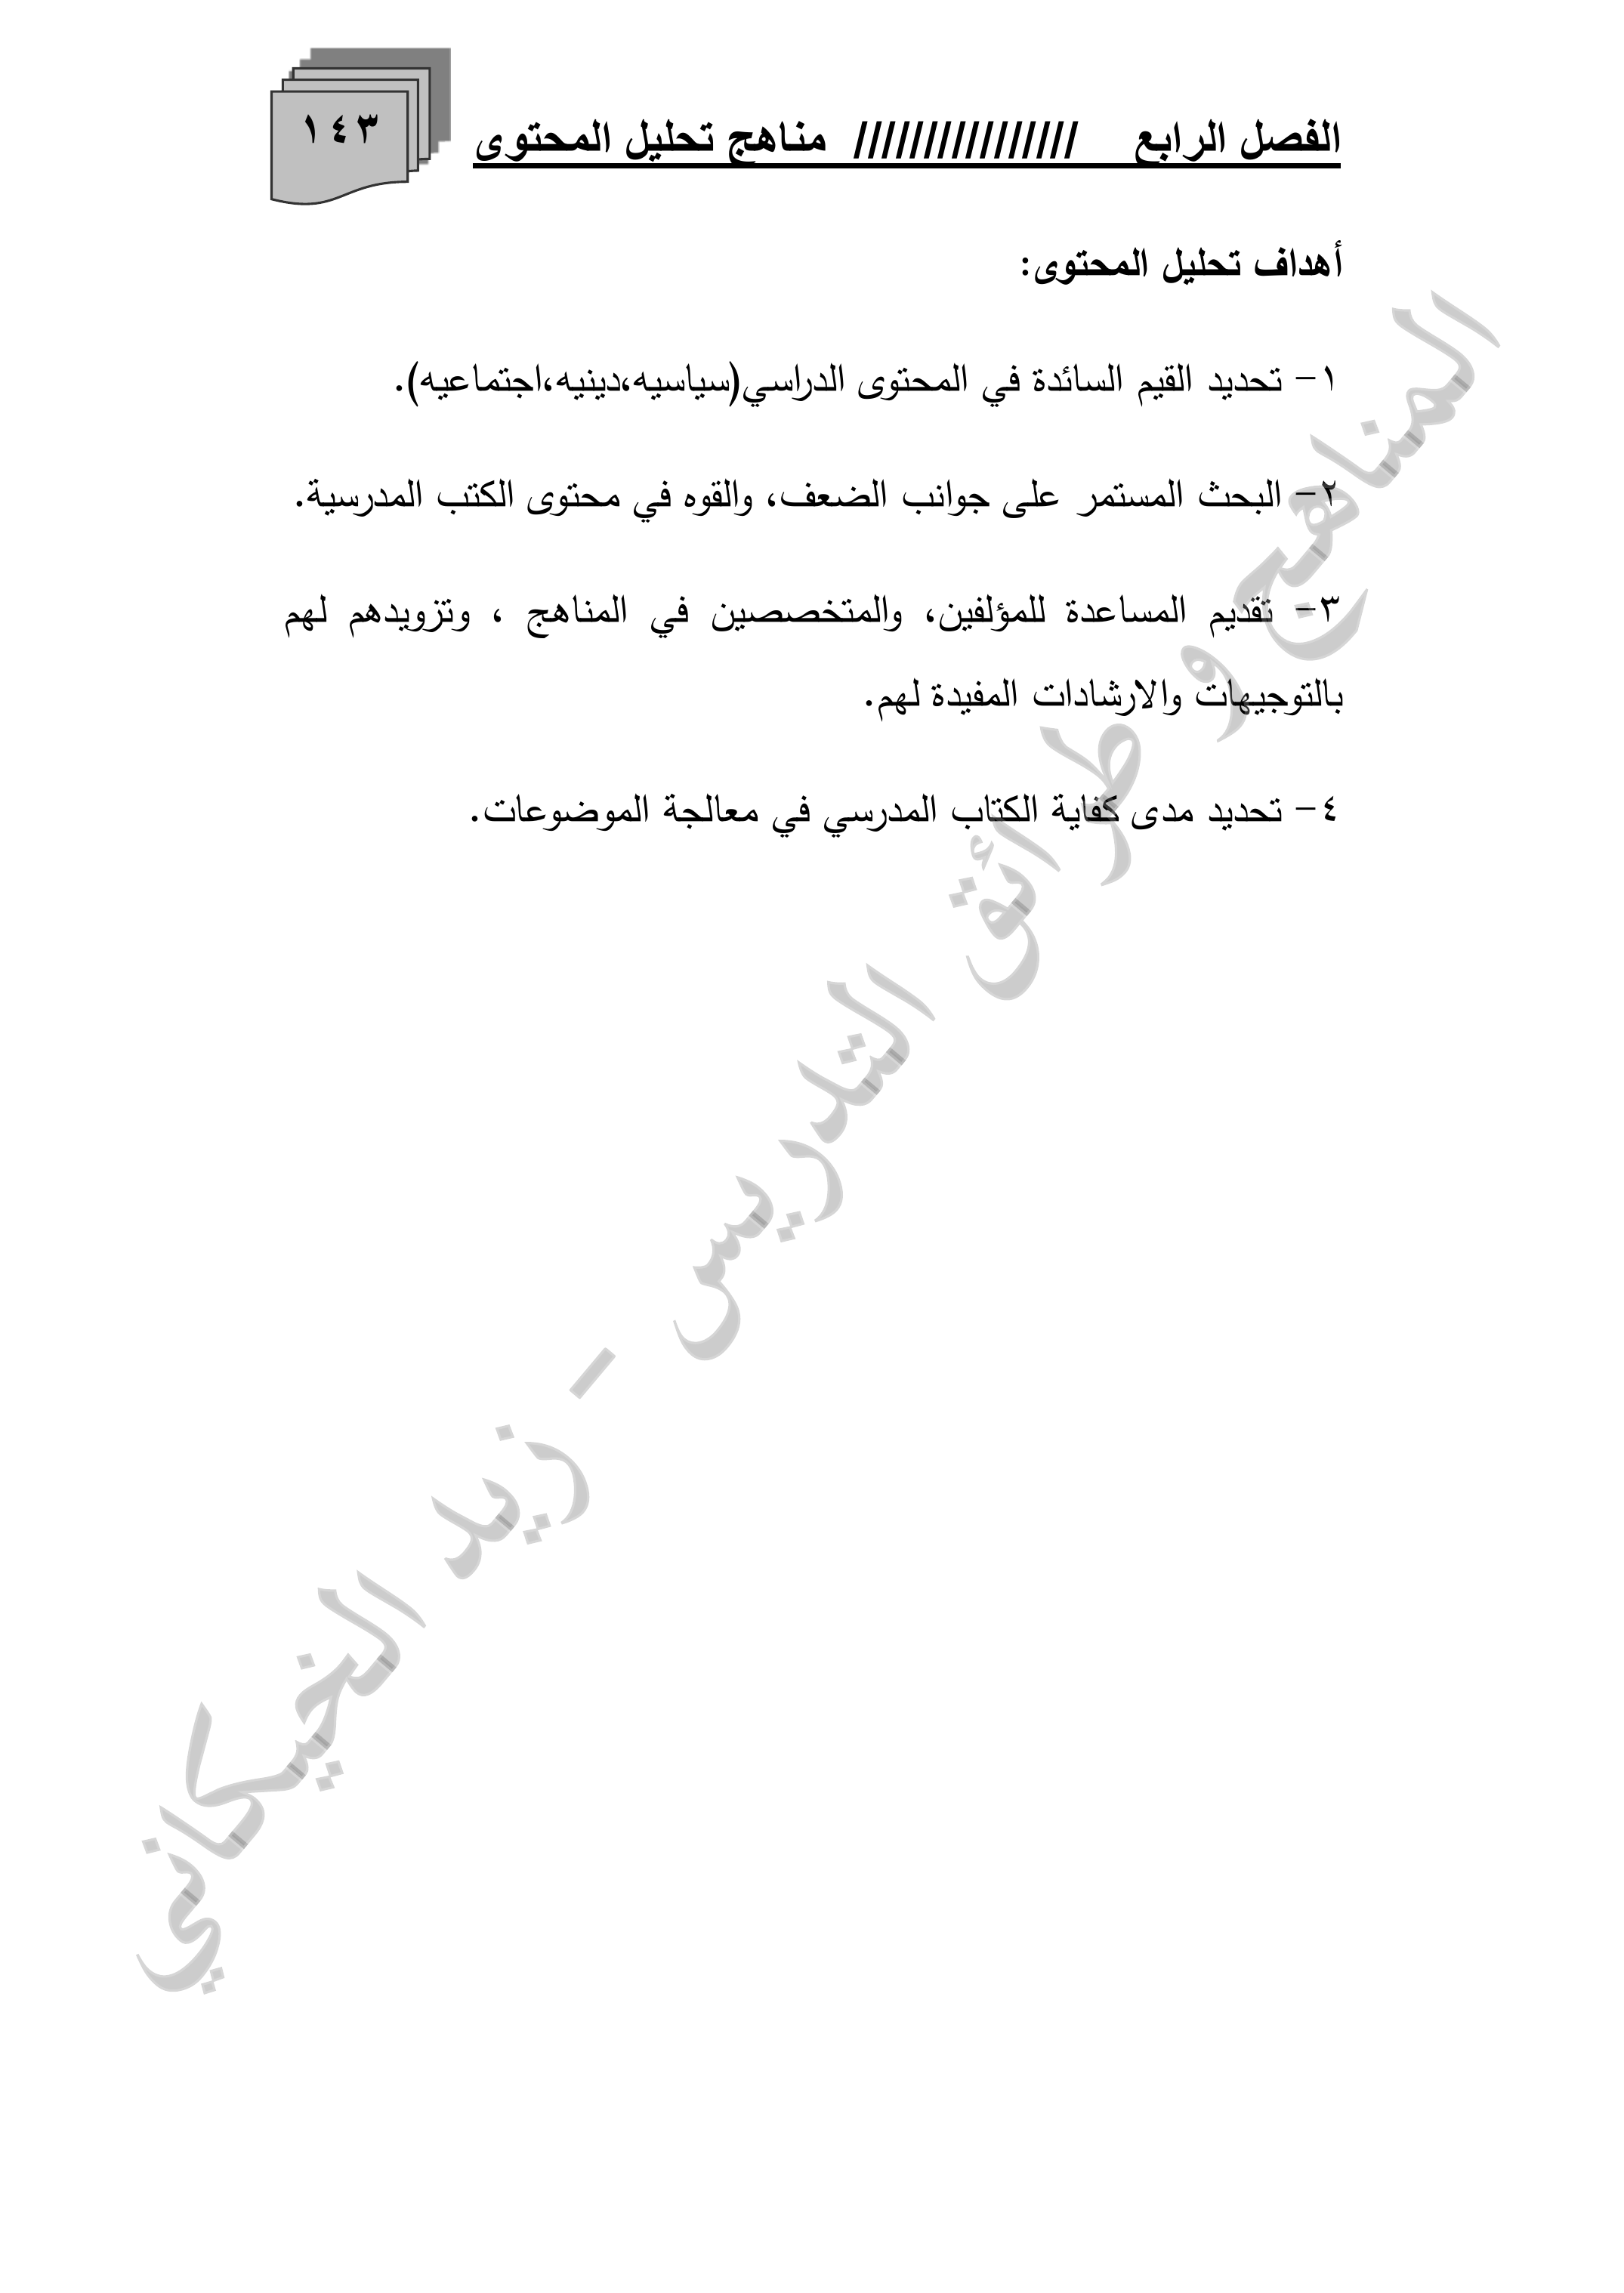 ١٤٣
الفصل الرابع //////////////// مناهج تحليل المحتوى
أهداف تحليل المحتوى:
١- تحديد القيم السائدة في المحتوى الدراسي(سياسيه،دينيه،اجتماعيه).
٢- البحث المستمر على جوانب الضعف، والقوه في محتوى الكتب المدرسية.
٣- تقديم المساعدة للمؤلفين، والمتخصصين في المناهج ، وتزويدهم لهم
بالتوجيهات والارشادات المفيدة لهم.
٤- تحديد مدى كفاية الكتاب المدرسي في معالجة الموضوعات.
المناهج و طرائق التدريس - زيد الخيكاني